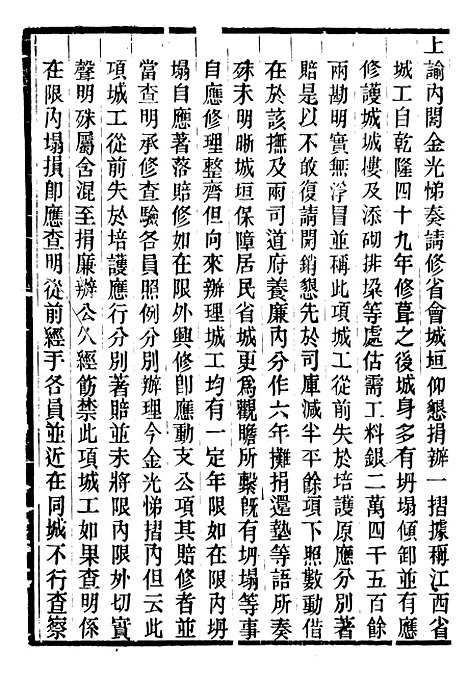 上諭內閣金光悌奏請修省會城垣仰懇捐辦一摺據稱江西省
城工自乾隆四十九年修葺之後城身多有坍塌傾卸並有應
修護城城樓及添砌排垜等處估需工料銀二萬四千五百餘
兩勘明實無浮冒並稱此項城工從前失於培護原應分別著
賠是以不敢復請開銷懇先於司庫減半平餘項下照數動借
在於該撫及兩司道府養廉內分作六年攤捐還墊等語所奏
殊未明晰城垣保障居民省城更為觀瞻所繫旣有坍塌等事
自應修理整齊但向來辦理城工均有一定年限如在限內坍
塌自應著落賠修如在限外興修卽應動支公項其賠修者應
當查明承修查驗各員照例分別辦理今金光悌摺內但云此
項城工從前失於培護應行分別著賠並未將限內限外切實
聲明殊屬含混至捐廉辦公久經飭禁此項城工如果查明係
在限內塌損卽應查明從前經手各員並近在同城不行查察